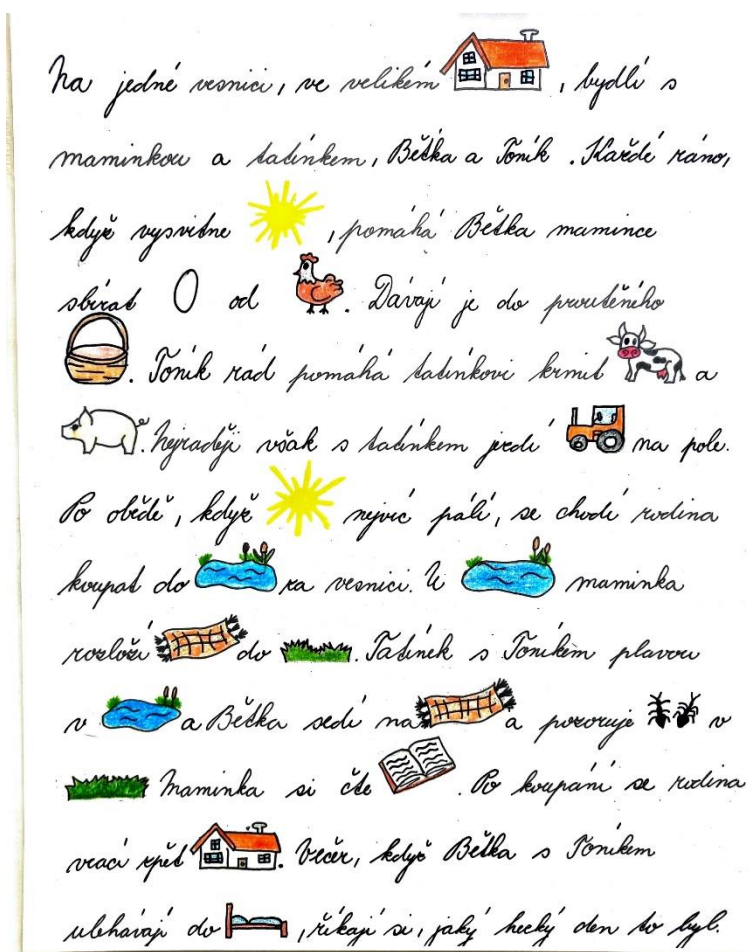 Na jedné vesnici, ve velikém , bydlí s
maminkou a tatínkem, Bětka a Toník. Každé ráno,
když vysvitne , pomáhá Bětka mamince
sbírat od . Dávají je do proutěného
. Toník rád pomáhá tatínkovi krmit a
. Nejraději však s tatínkem jezdí na pole.
Po obědě, když nejvíc pálí, se chodí rodina
koupat do za vesnici. U maminka
rozloží do . Tatínek s Toníkem plavou
v a Bětka sedí na a pozoruje v
Maminka si čte . Po koupání se rodina
vrací zpět . Večer, když Bětka s Toníkem
ulehávají do , říkají si, jaký hecký den to byl.